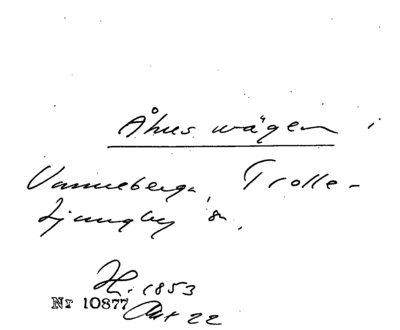 Åhus wägen i
Vanneberga, Trolle-
Ljungby sn.
H. 1853
Nr 10877 Akt 22